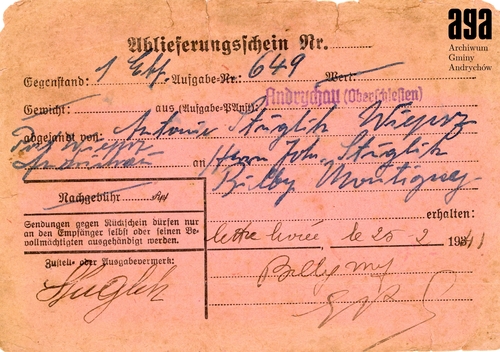 aga
Archiwum
Gminy
Andrychów
Ablieferungsschein Nr.
Gegenstand: 1 Ebf. Aufgabe-Nr.: 649 Wert:
Gewicht: aus (Aufgabe-PAnst): Andrychau (Oberschlesien)
abgesandt von: Antonie Stuglik Wieprz
Post Wieprz
Andrichau an Herrn Joh. Stuglik
Billy Montigny
Nachgebühr Rpf
erhalten:
Sendungen gegen Rückschein dürfen nur
an den Empfänger selbst oder seinen Be-
vollmächtigten ausgehändigt werden.
lettre livrée, le 25-2 1941
Zustell- oder Ausgabevermerk:
Billy My
Stuglik